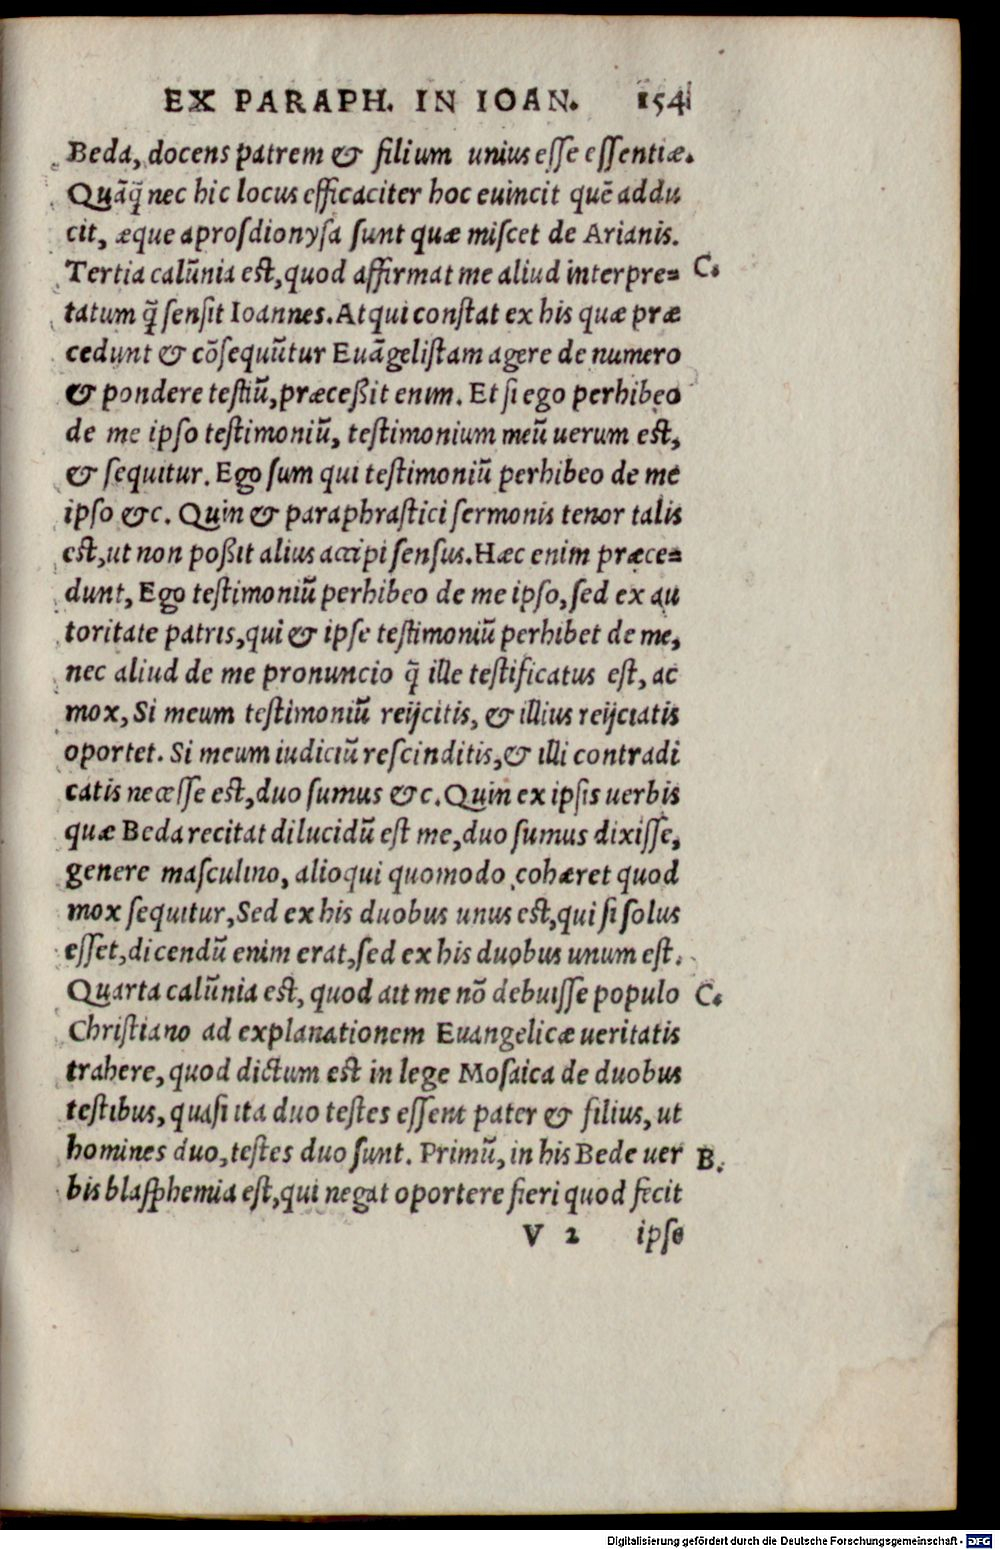 EX PARAPH. IN IOAN. 154
Beda, docens patrem & filium unius esse essentiæ.
Quāq̃ nec hic locus efficaciter hoc euincit quē addu
cit, æque aprosdionysa sunt quæ miscet de Arianis.
Tertia calūnia est, quod affirmat me aliud interpre= C.
tatum q̃ sensit Ioannes. Atqui constat ex his quæ præ
cedunt & cōsequūtur Euāgelistam agere de numero
& pondere testiū, præceßit enim. Et si ego perhibeo
de me ipso testimoniū, testimonium meū uerum est,
& sequitur. Ego sum qui testimoniū perhibeo de me
ipso &c. Quin & paraphrastici sermonis tenor talis
est, ut non poßit alius accipi sensus. Hæc enim præce=
dunt, Ego testimoniū perhibeo de me ipso, sed ex au
toritate patris, qui & ipse testimoniū perhibet de me,
nec aliud de me pronuncio q̃ ille testificatus est, ac
mox, Si meum testimoniū reijcitis, & illius reijciatis
oportet. Si meum iudiciū rescinditis, & illi contradi
catis necesse est, duo sumus &c. Quin ex ipsis uerbis
quæ Beda recitat dilucidū est me, duo sumus dixisse,
genere masculino, alioqui quomodo cohæret quod
mox sequitur, Sed ex his duobus unus est, qui si solus
esset, dicendū enim erat, sed ex his duobus unum est.
Quarta calūnia est, quod ait me nō debuisse populo C.
Christiano ad explanationem Euangelicæ ueritatis
trahere, quod dictum est in lege Mosaica de duobus
testibus, quasi ita duo testes essent pater & filius, ut
homines duo, testes duo sunt. Primū, in his Bede uer B.
bis blasphemia est, qui negat oportere fieri quod fecit
V 2 ipse
Digitalisierung gefördert durch die Deutsche Forschungsgemeinschaft - DFG